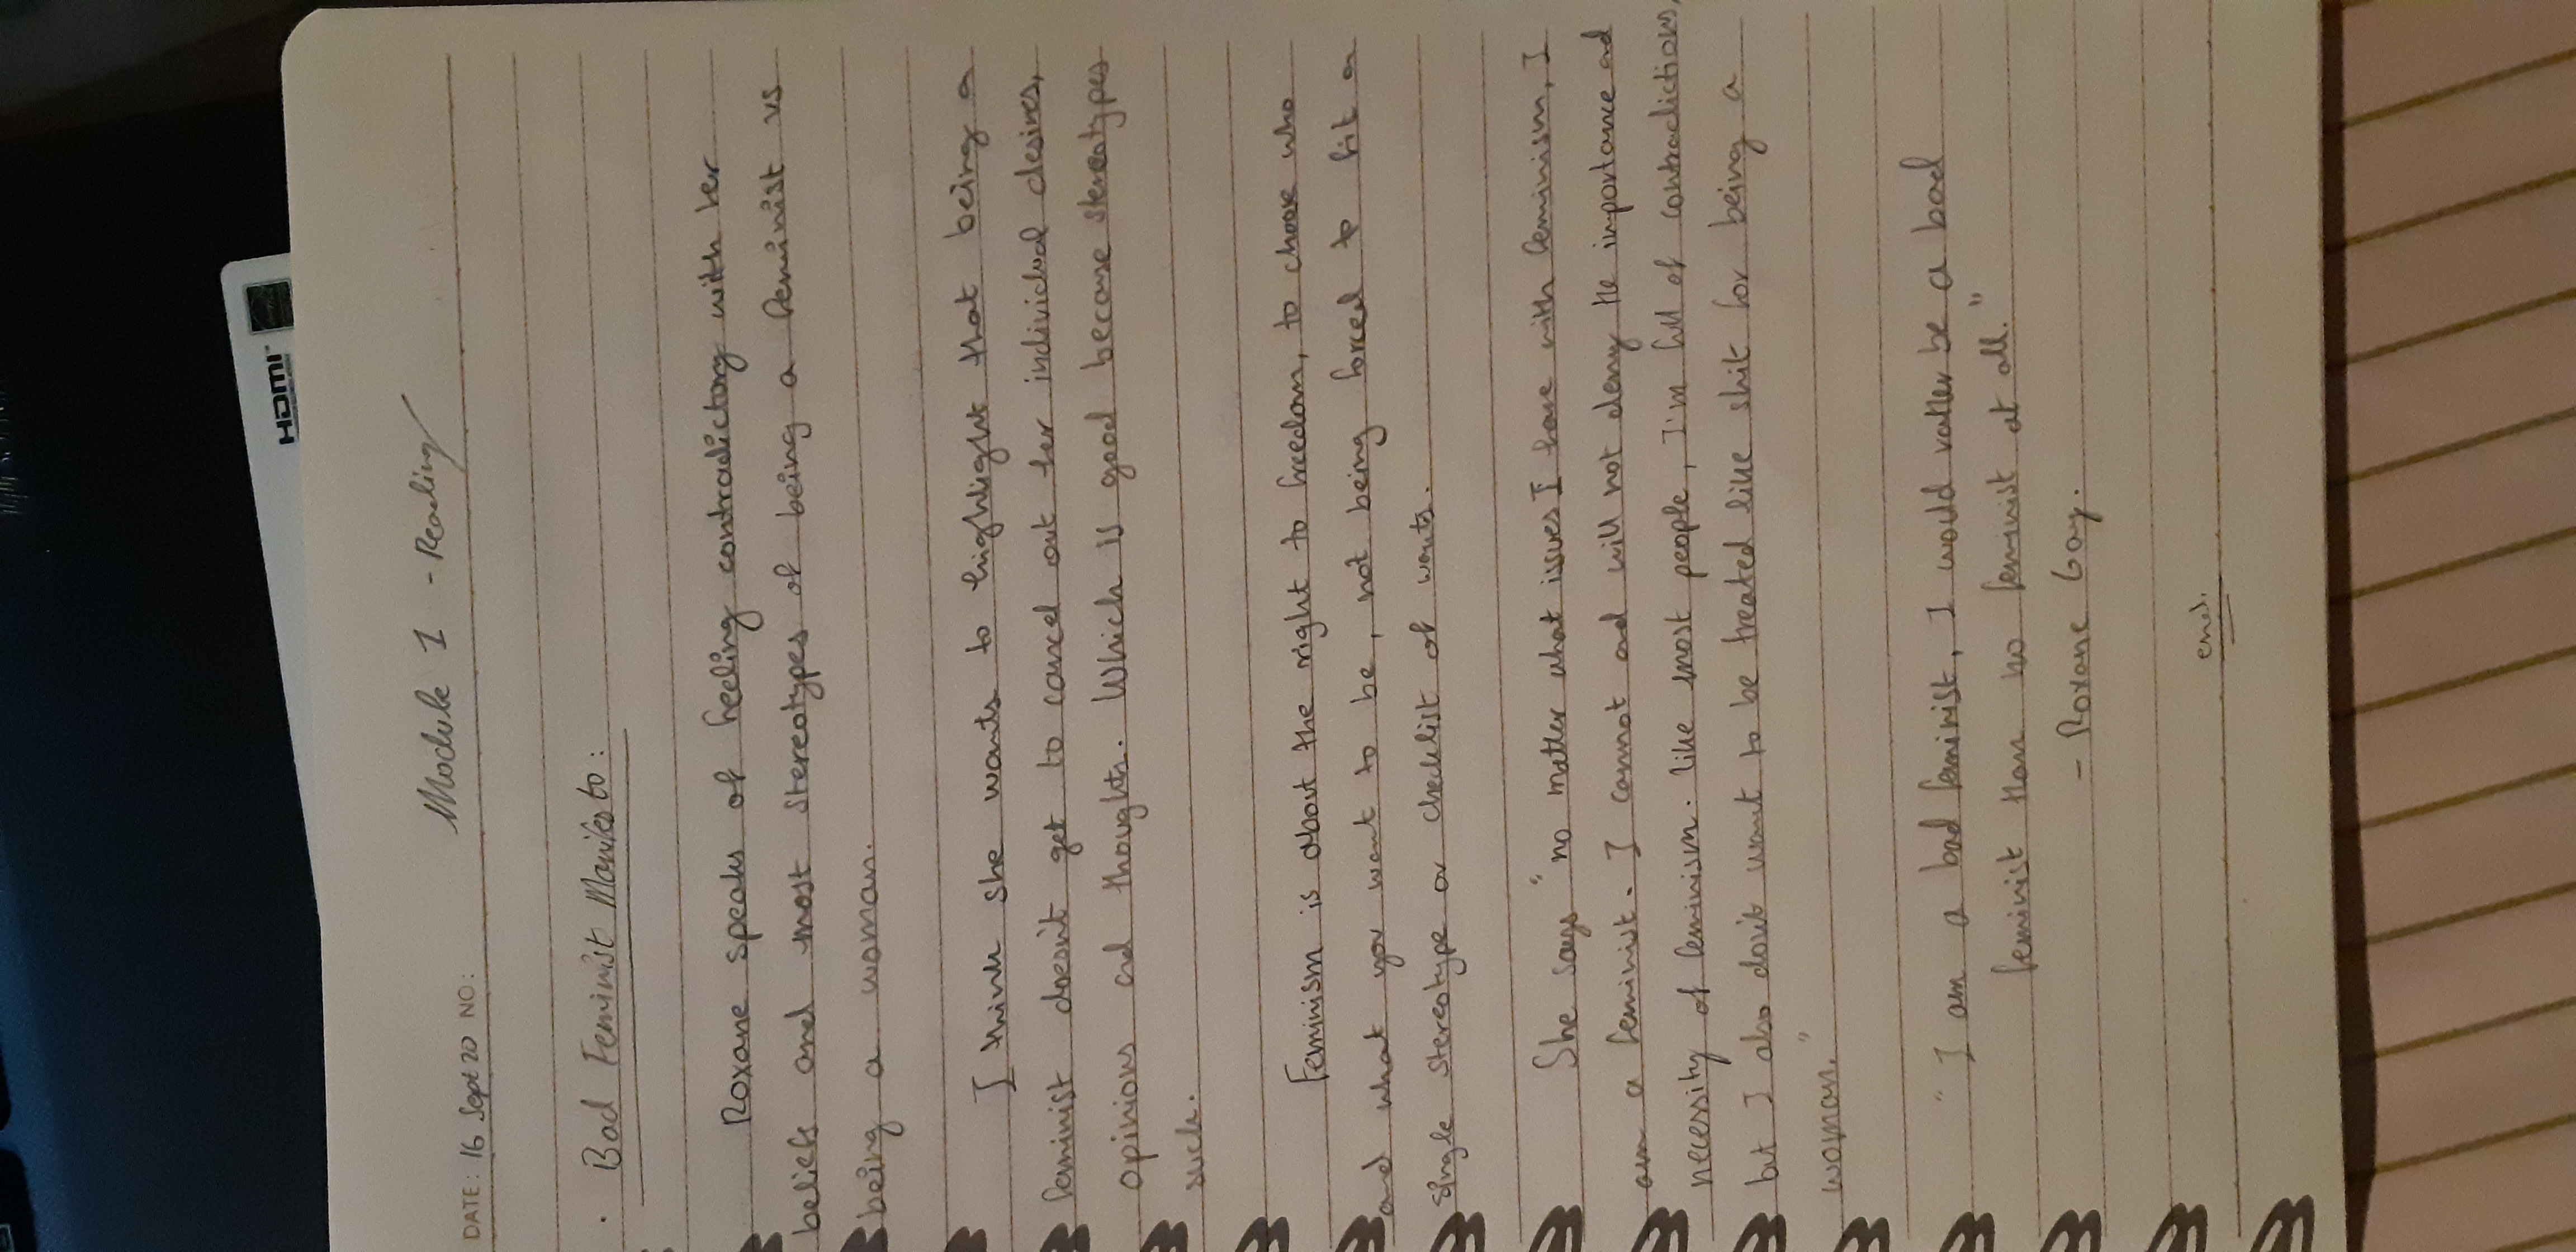 HDMI
Module 1 - Reading
DATE: 16 Sept 20 NO:
· Bad Feminist Manifesto:
Roxane speaks of feeling contradictory with her
beliefs and most stereotypes of being a feminist vs
being a woman.
I think she wants to highlight that being a
feminist doesn't get to cancel out her individual desires,
opinions and thoughts. Which is good because stereotypes
suck.
Feminism is about the right to freedom, to choose who
and what you want to be, not being forced to fit a
single stereotype or checklist of wants.
She says "no matter what issues I have with feminism, I
am a feminist. I cannot and will not deny the importance and
necessity of feminism. Like most people, I'm full of contradictions,
but I also don't want to be treated like shit for being a
woman."
"I am a bad feminist, I would rather be a bad
feminist than no feminist at all."
- Roxane Gay.
end.